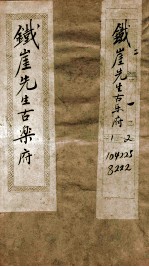 鐵崖先生古樂府
鐵崖先生古乐府
一二
1 2
104225
8222